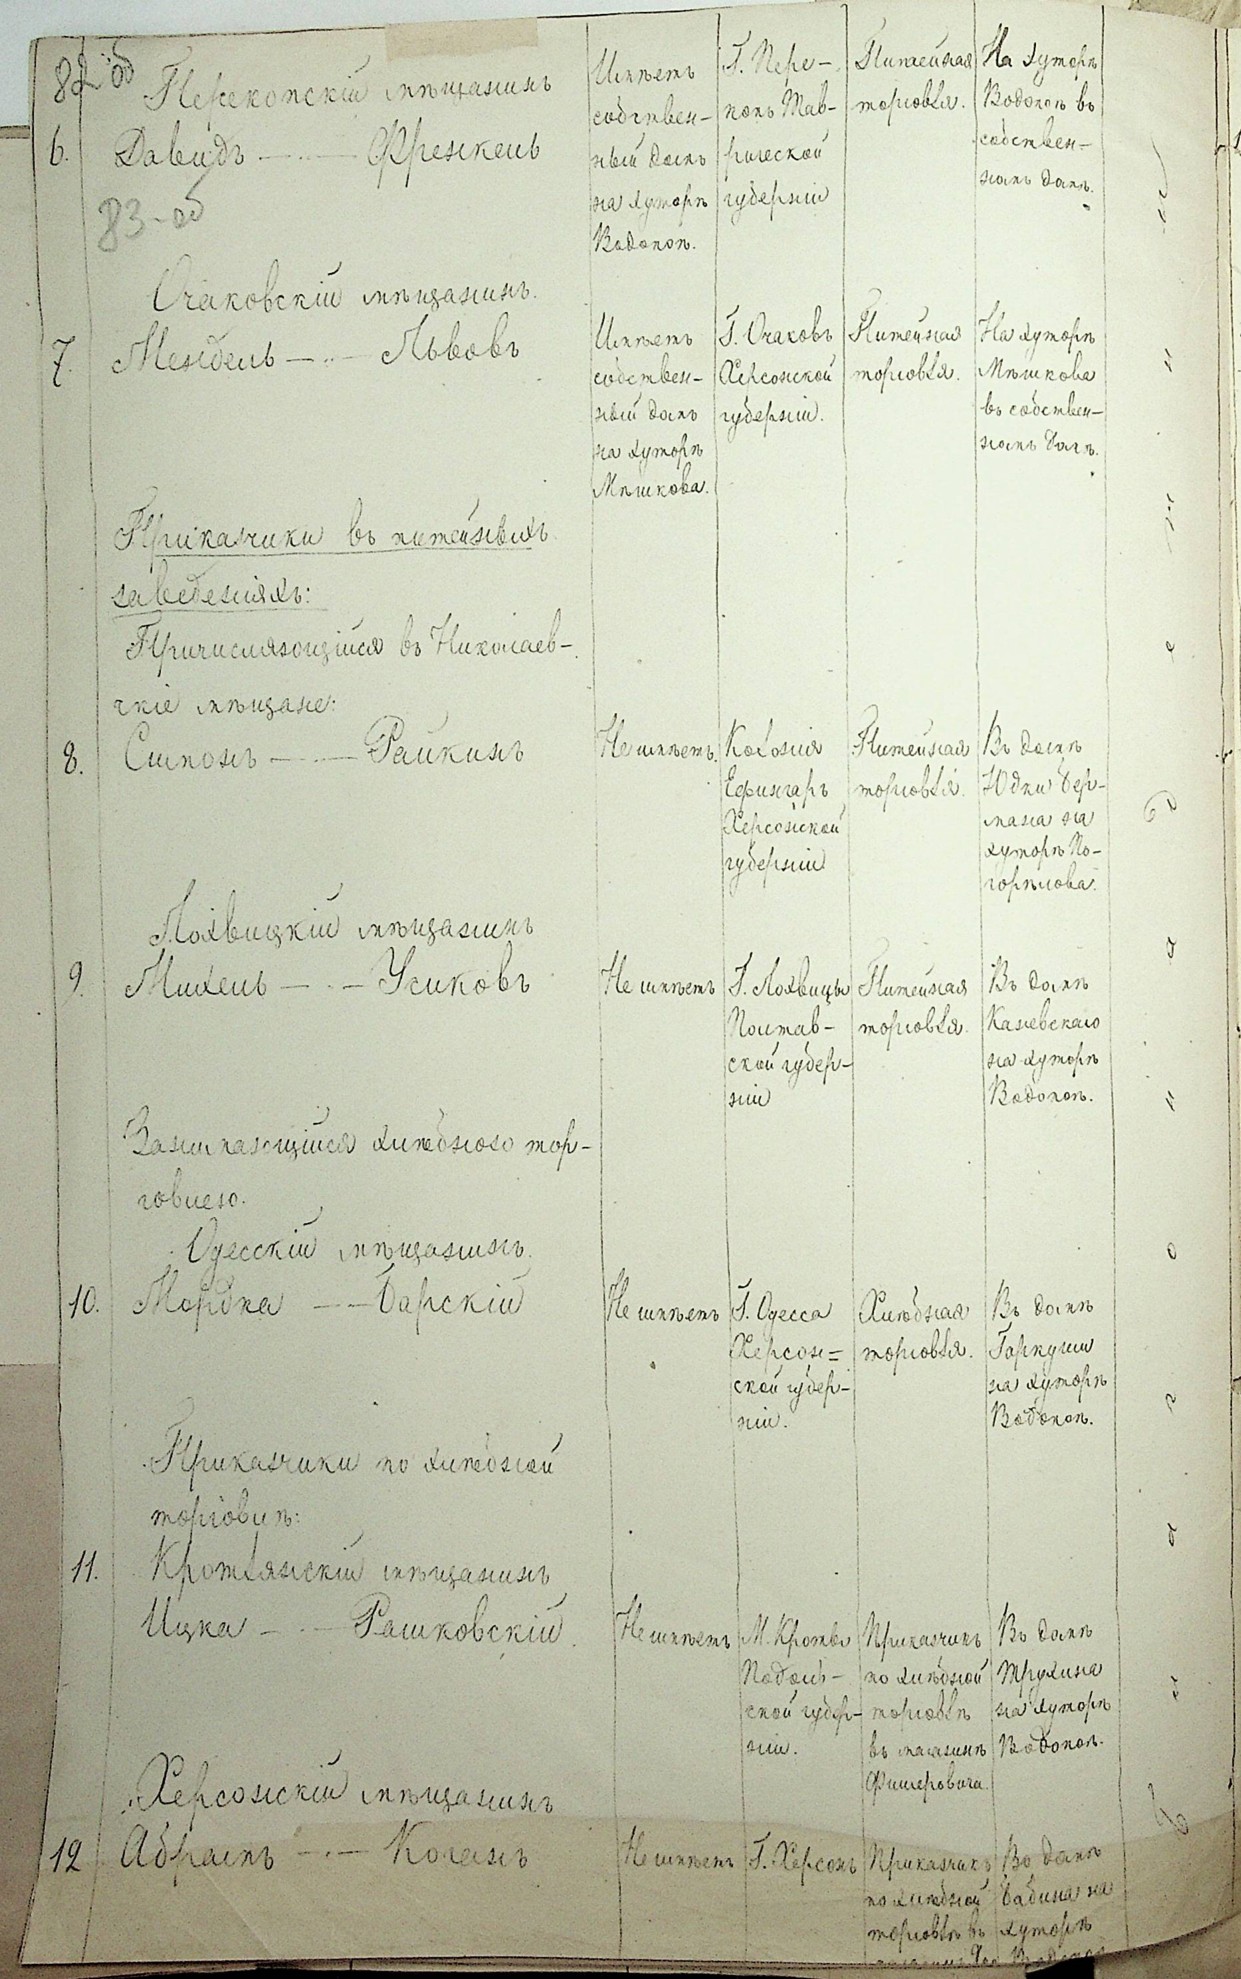 82 об
83-об
Перекопскій мѣщанинъ
6. Давидъ — Френкель
Имѣетъ
собствен-
ный домъ
на хуторѣ
Водопоѣ.
Г. Пере-
копъ Тав-
рической
губерніи
Питейная
торговля.
На хуторѣ
Водопоѣ въ
собствен-
номъ домѣ.
Очаковскій мѣщанинъ.
7. Мендель — Львовъ
Имѣетъ
собствен-
ный домъ
на хуторѣ
Мѣшкова.
Г. Очаковъ
Херсонской
губерніи.
Питейная
торговля.
На хуторѣ
Мѣшкова
въ собствен-
номъ домѣ.
Приказчики въ питейныхъ
заведеніяхъ:
Причисляющійся въ Николаев-
скіе мѣщане:
8. Симонъ — Райкинъ
Не имѣетъ.
Колонія
Ефингаръ
Херсонской
губерніи
Питейная
торговля.
Въ домѣ
Юдки Бер-
мана на
хуторѣ По-
горѣлова.
Лохвицкій мѣщанинъ
9. Михель — Усиковъ
Не имѣетъ
Г. Лохвицы
Полтав-
ской губер-
ніи
Питейная
торговля.
Въ домѣ
Каневскаго
на хуторѣ
Водопоѣ.
Занимающійся хлѣбною тор-
говлею.
Одесскій мѣщанинъ.
10. Мордка — Барскій
Не имѣетъ
Г. Одесса
Херсон=
ской губер-
ніи.
Хлѣбная
торговля.
Въ домѣ
Гаркуши
на хуторѣ
Водопоѣ.
Приказчики по хлѣбной
торговлѣ:
11. Кротянскій мѣщанинъ
Ицка — Рашковскій.
Не имѣетъ
М. Кроты
Подоль-
ской губер-
ніи.
Приказчикъ
по хлѣбной
торговлѣ
въ магазинѣ
Фишеровича.
Въ домѣ
Трухина
на хуторѣ
Водопоѣ.
Херсонскій мѣщанинъ
12 Абрамъ — Коганъ
Не имѣетъ
Г. Херсонъ
Приказчикъ
по хлѣбной
торговлѣ въ
Въ домѣ
Бабина на
хуторѣ
Водопоѣ